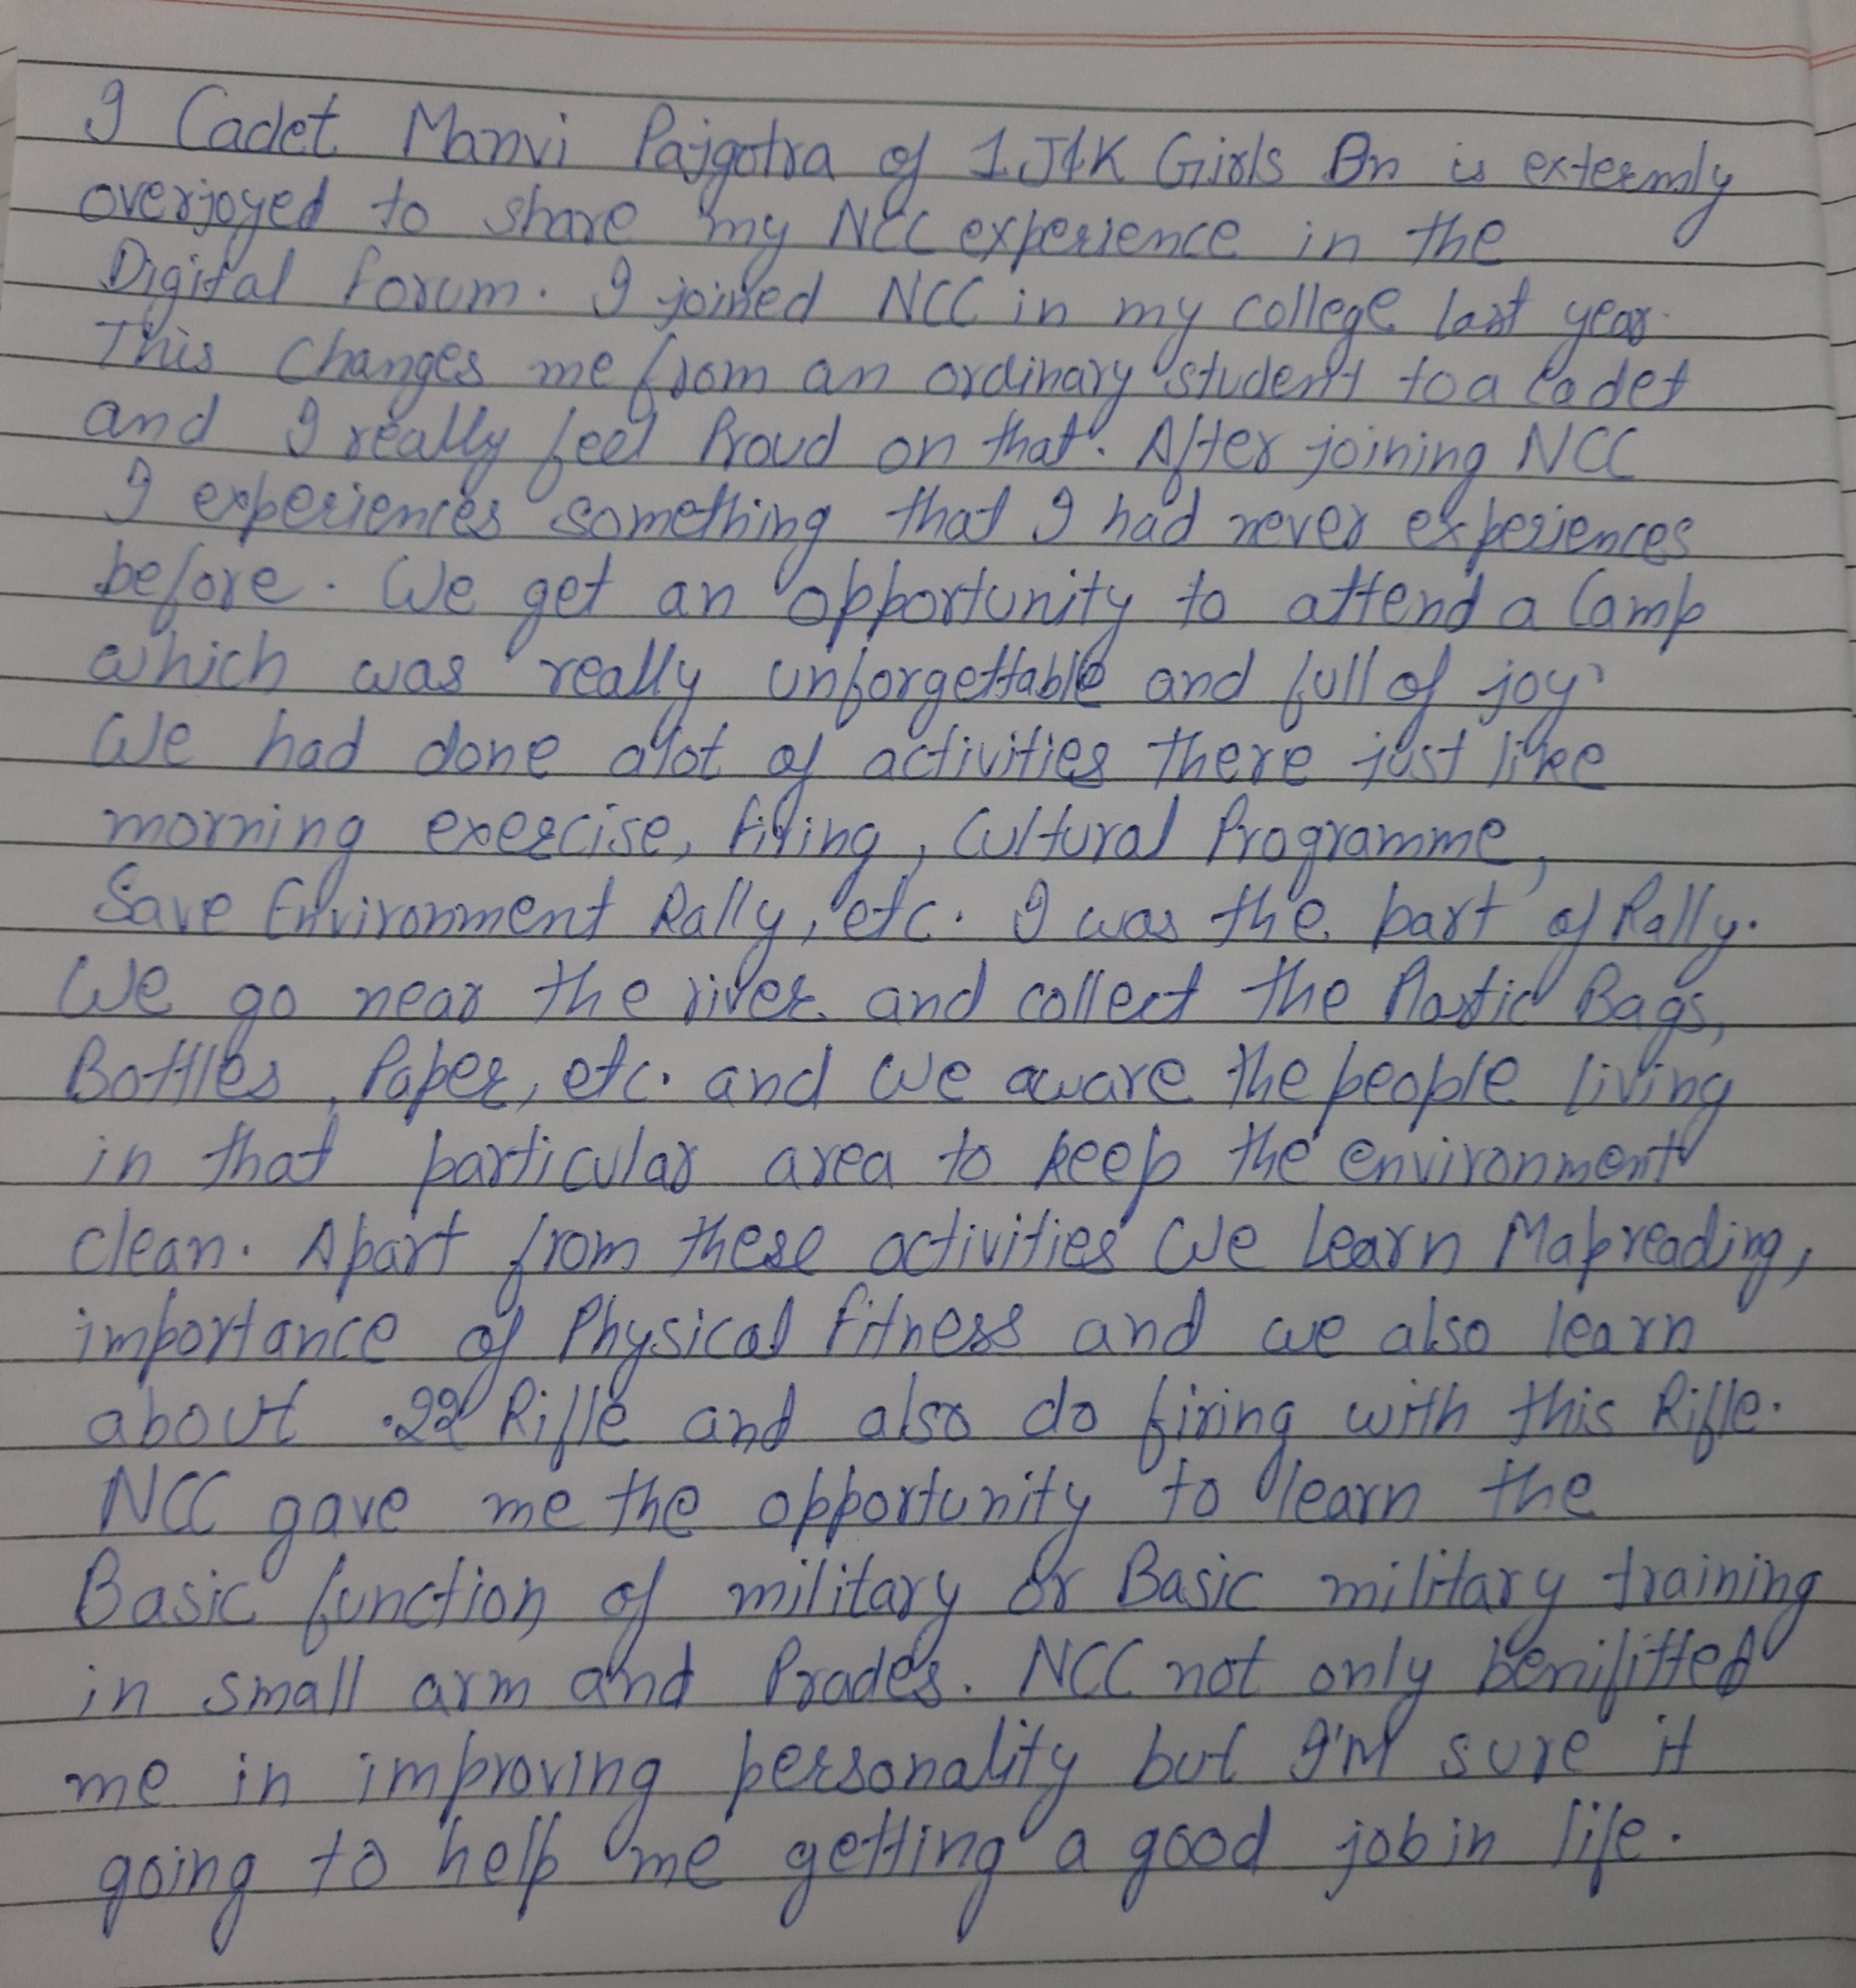 I Cadet Manvi Pajgotra of 1 J&K Girls Bn is extermly
overjoyed to share my NCC experience in the
Digital Forum. I joined NCC in my college last year.
This Changes me from an ordinary student to a Cadet
and I really feel Proud on that. After joining NCC
I experiences something that I had never experiences
before. We get an opportunity to attend a Camp
which was really unforgettable and full of joy.
We had done alot of activities there just like
morning exercise, firing, Cultural Programme,
Save Environment Rally, etc. I was the part of Rally.
We go near the river and collect the Plastic Bags,
Bottles, Paper, etc. and we aware the people living
in that particular area to keep the environment
clean. Apart from these activities We Learn Mapreading,
importance of Physical Fitness and we also learn
about .22 Rifle and also do firing with this Rifle.
NCC gave me the opportunity to learn the
Basic function of military or Basic military training
in small arm and Prades. NCC not only benifitted
me in improving personality but I'M sure it
going to help me getting a good job in life.